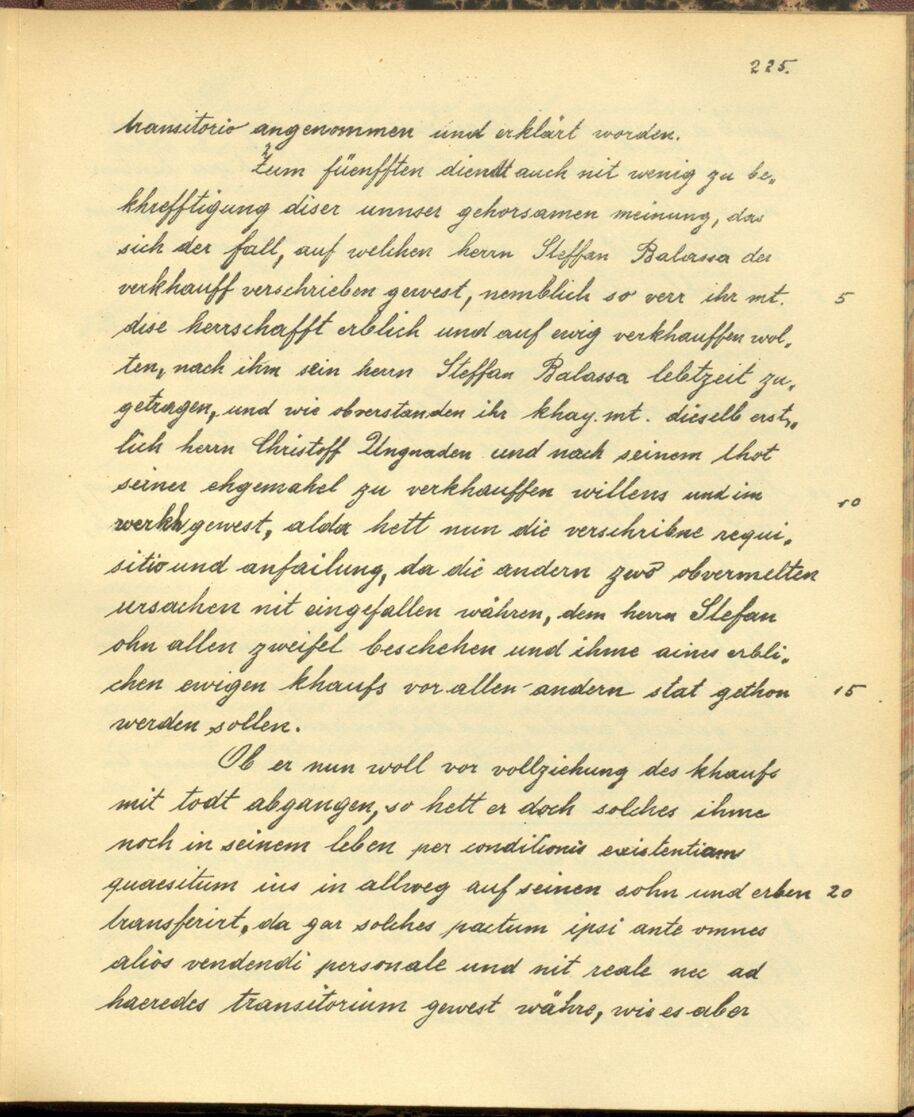 225.
transitorio angenommen und erklärt worden.
Zum füenfften diendt auch nit wenig zu be„
khrefftigung diser unnser gehorsamen meinung, das
sich der fall, auf welchen herrn Steffan Balassa der
verkhauff verschrieben gewest, nemblich so verr ihr mt. 5
dise herrschafft erblich und auf ewig verkhauffen wol„
ten, nach ihm sein herrn Steffan Balassa lebtzeit zu„
getragen, und wie obverstanden ihr khay. mt. dieselb erst„
lich herrn Christoff Ungnaden und nach seinem thot
seiner ehgemahel zu verkhauffen willens und im 10
werkh gewest, alda hett nun die verschribne requi„
sitio und anfailung, da die andern zwo obvermelten
ursachen nit eingefallen währen, dem herrn Stefan
ohn allen zweifel beschehen und ihme aines erbli„
chen ewigen khaufs vor allen andern stat gethon 15
werden sollen.
Ob er nun woll vor vollziehung des khaufs
mit todt abgangen, so hett er doch solches ihme
noch in seinem leben per conditionis existentiam
quaesitum ius in allweg auf seinen sohn und erben 20
transferirt, da gar solches pactum ipsi ante omnes
alios vendendi personale und nit reale nec ad
haeredes transitorium gewest währe, wie es aber